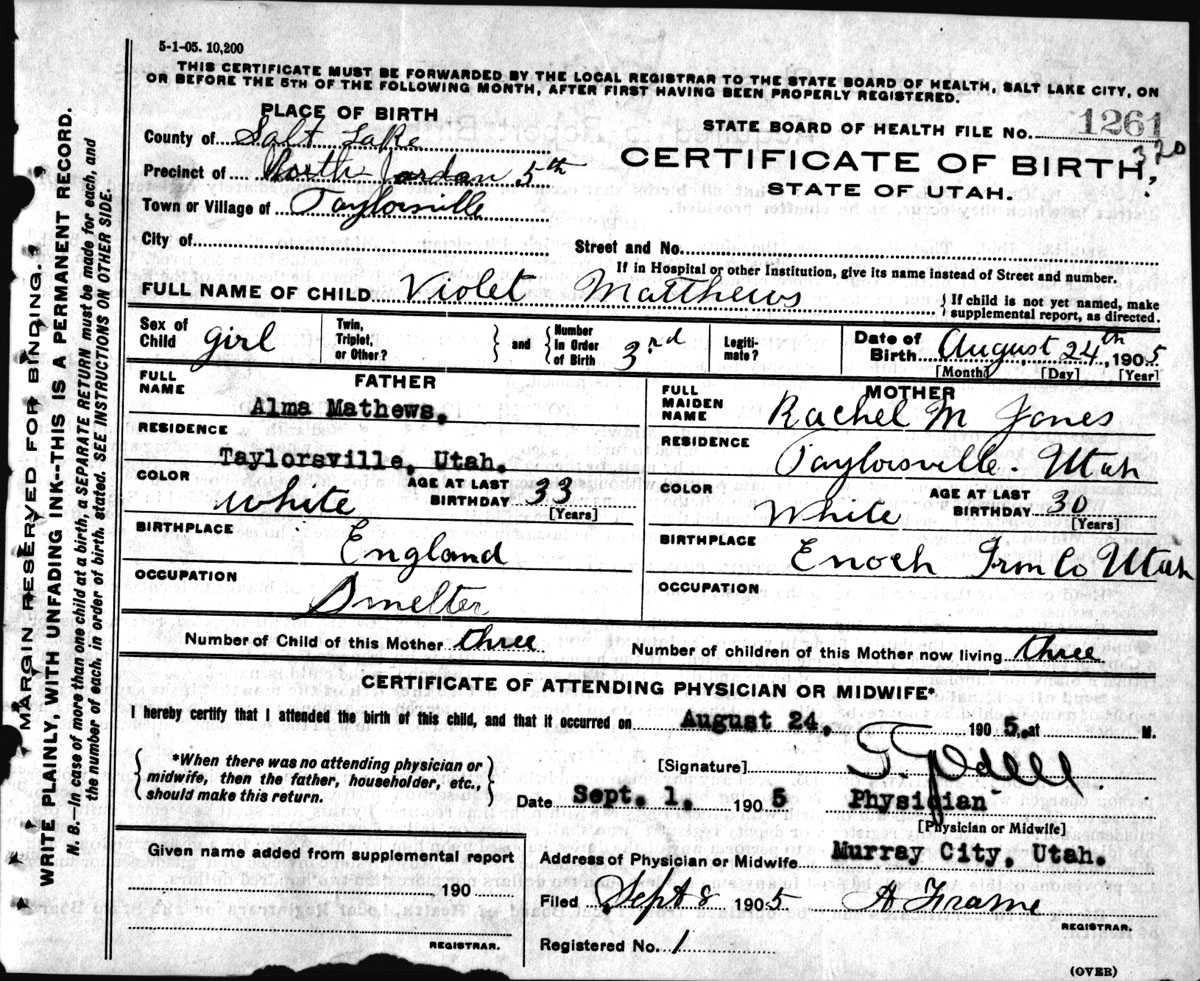 5-1-05. 10,200
THIS CERTIFICATE MUST BE FORWARDED BY THE LOCAL REGISTRAR TO THE STATE BOARD OF HEALTH, SALT LAKE CITY, ON
OR BEFORE THE 5TH OF THE FOLLOWING MONTH, AFTER FIRST HAVING BEEN PROPERLY REGISTERED.
PLACE OF BIRTH
STATE BOARD OF HEALTH FILE No. 1261
320
County of Salt Lake
CERTIFICATE OF BIRTH,
Precinct of North Jordan 5th
STATE OF UTAH.
Town or Village of Taylorsville
City of
Street and No.
If in Hospital or other Institution, give its name instead of Street and number.
FULL NAME OF CHILD Violet Matthews
{If child is not yet named, make
supplemental report, as directed.
Sex of Child girl
Twin, Triplet, or Other?
and
Number In Order of Birth 3rd
Legiti-mate?
Date of Birth August 24th, 1905
[Month] [Day] [Year]
FATHER
FULL NAME
Alma Mathews.
RESIDENCE
Taylorsville, Utah.
COLOR White
AGE AT LAST BIRTHDAY 33
[Years]
BIRTHPLACE
England
OCCUPATION
Smelter
MOTHER
FULL MAIDEN NAME
Rachel M Jones
RESIDENCE
Taylorsville. Utah
COLOR White
AGE AT LAST BIRTHDAY 30
[Years]
BIRTHPLACE
Enoch Irn Co Utah
OCCUPATION
Number of Child of this Mother three
Number of children of this Mother now living three
CERTIFICATE OF ATTENDING PHYSICIAN OR MIDWIFE*
I hereby certify that I attended the birth of this child, and that it occurred on August 24, 1905, at M.
*When there was no attending physician or
midwife, then the father, householder, etc.,
should make this return.
[Signature]
Date Sept. 1. 1905
Physician
[Physician or Midwife]
Given name added from supplemental report
190
REGISTRAR.
Address of Physician or Midwife Murray City, Utah.
Filed Sept 8 1905
H Frame
REGISTRAR.
Registered No. 1
(OVER)
MARGIN RESERVED FOR BINDING.
WRITE PLAINLY, WITH UNFADING INK--THIS IS A PERMANENT RECORD.
N. B.—In case of more than one child at a birth, a SEPARATE RETURN must be made for each, and
the number of each, in order of birth, stated. SEE INSTRUCTIONS ON OTHER SIDE.